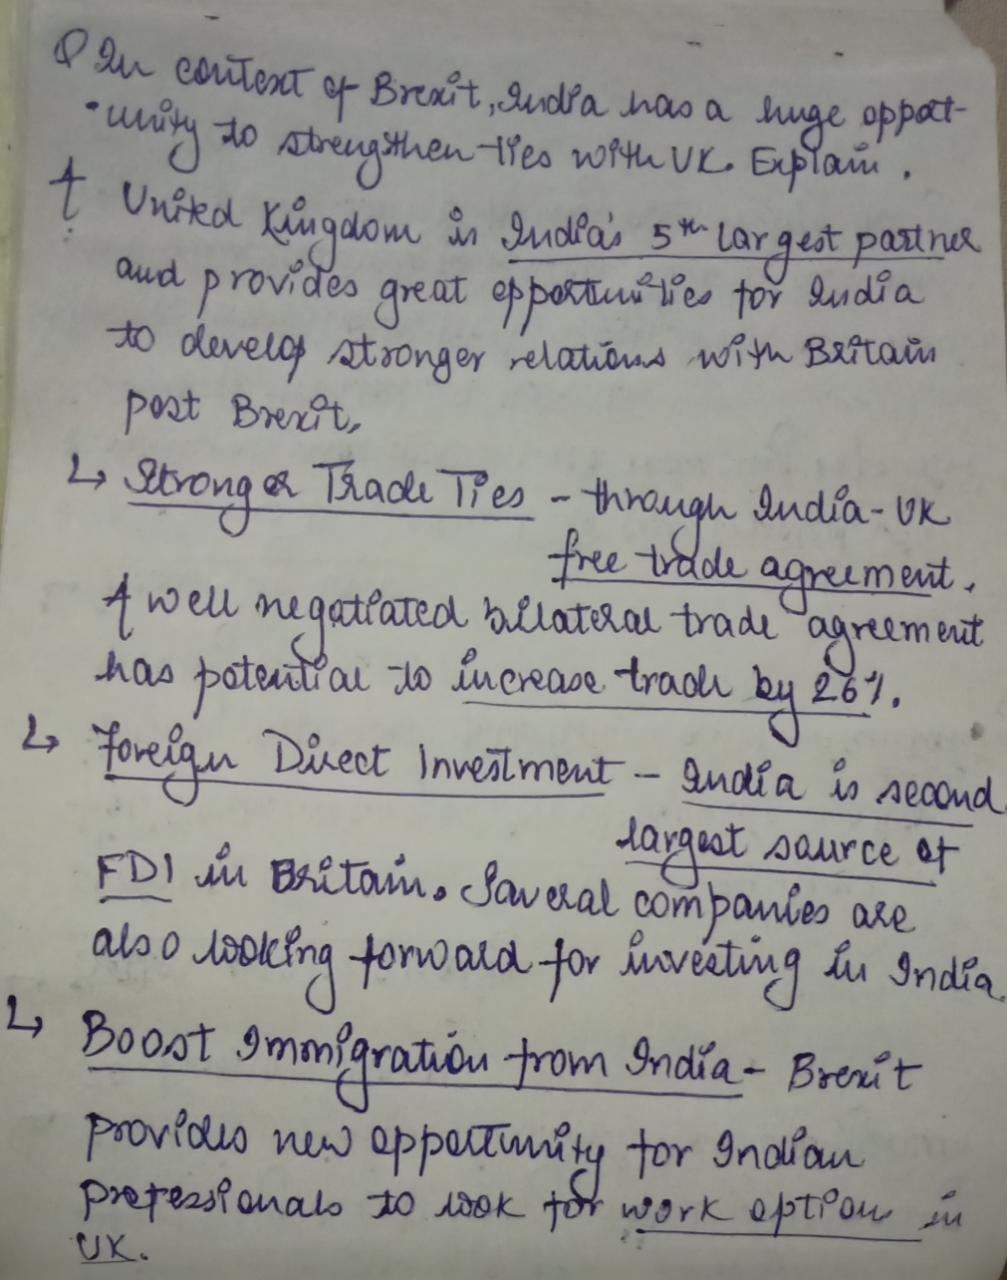 Q In context of Brexit, India has a huge opport-
unity to strengthen ties with UK. Explain.
A United Kingdom is India's 5th largest partner
and provides great opportunities for India
to develop stronger relations with Britain
post Brexit.
↳ Stronger Trade Ties - through India-UK
free trade agreement.
A well negotiated bilateral trade agreement
has potential to increase trade by 26%.
↳ Foreign Direct Investment - India is second
largest source of
FDI in Britain. Several companies are
also looking forward for investing in India.
↳ Boost Immigration from India - Brexit
provides new opportunity for Indian
professionals to look for work option in
UK.